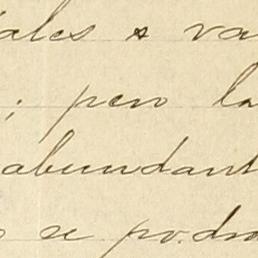 ales y va
; pero la
abundant
se podra